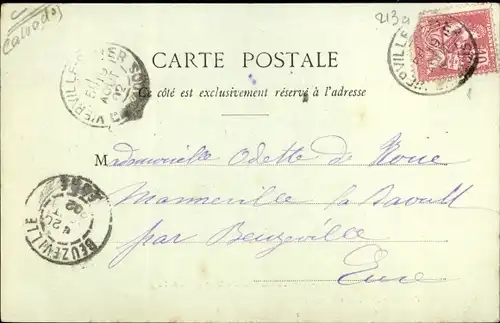 Calvados
213a
CARTE POSTALE
Ce côté est exclusivement réservé à l'adresse
VIERVILLE
AOUT
02
VIERVILLE
10
Mademoiselle Odette de
Manneville la Raoult
par Beuzeville
Eure
BEUZEVILLE
EURE
02